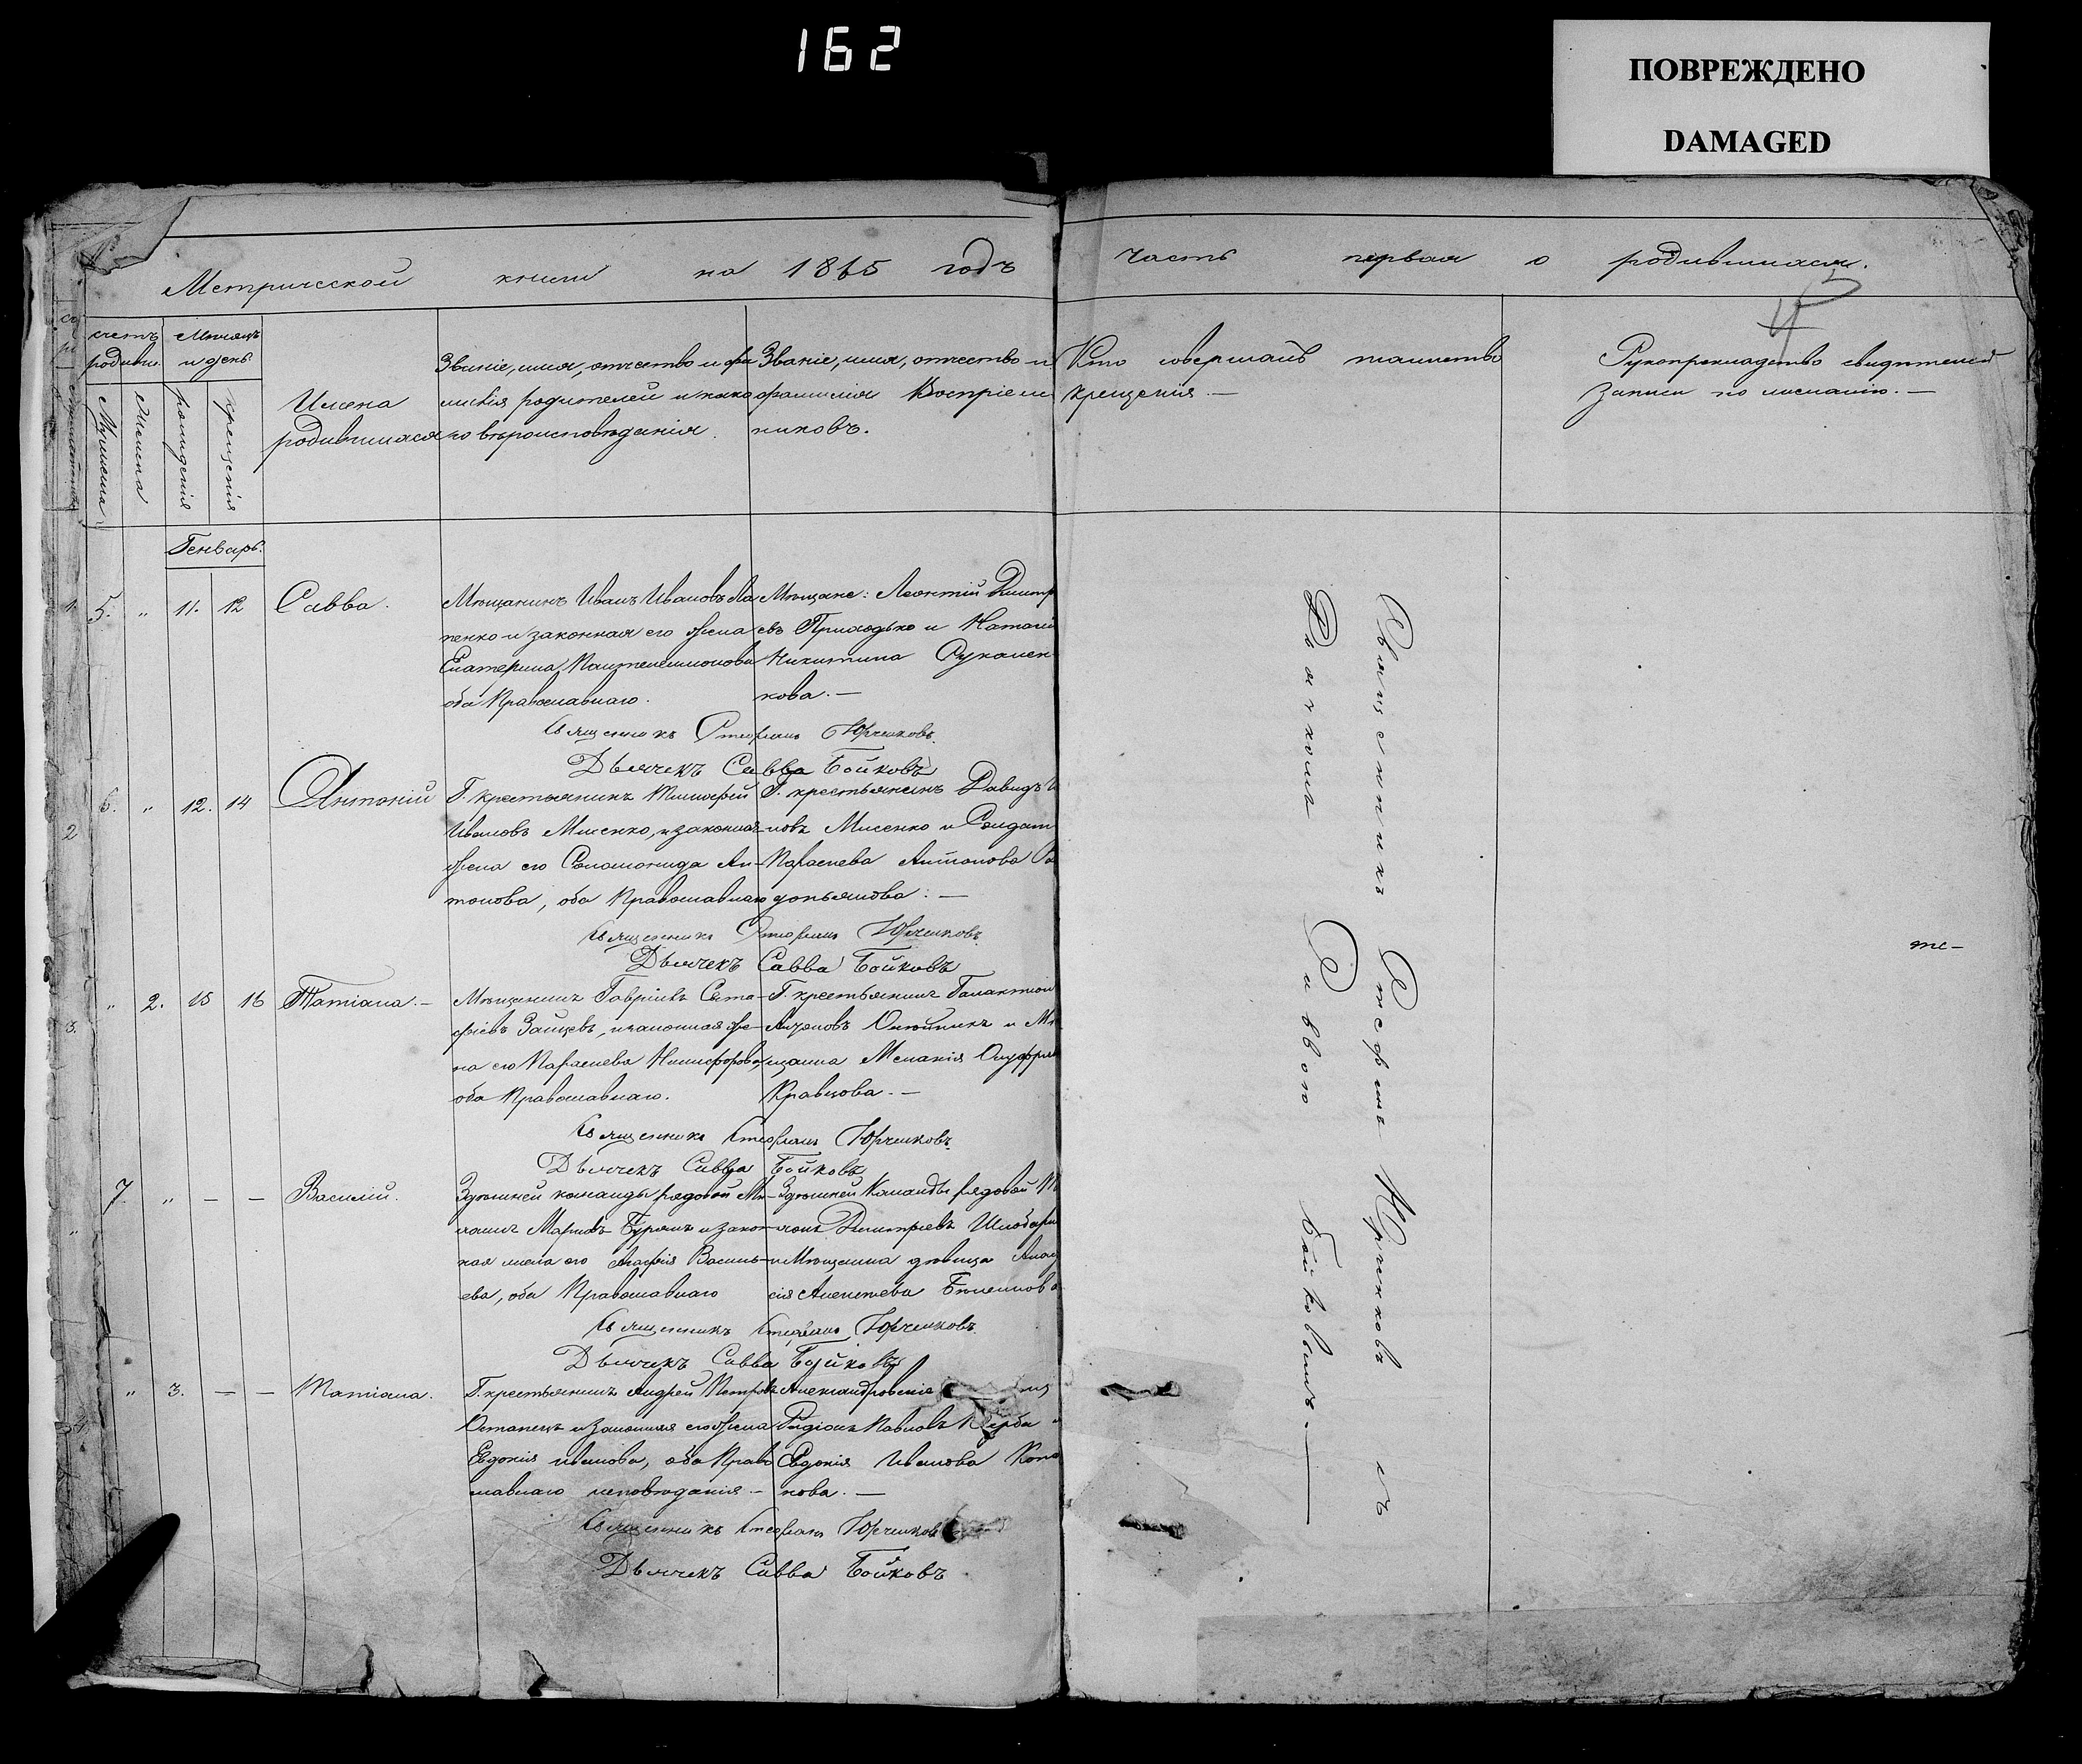 162
ПОВРЕЖДЕНО
DAMAGED
Метрической книги на 1865 годъ
часть первая о родившихся.
счетъ родивш.
Мѣсяцъ и день
Мужеска
Женска
рожденія
крещенія
Имена
родившихся
Званіе, имя, отчество и фа
милія родителей и како
го вѣроисповѣданія.
Званіе, имя, отчество и
фамилія Воспріем
никовъ.
Кто совершалъ таинство
крещенія. —
Рукоприкладство свидѣтелей
записи по желанію. —
Генварь.
1.
5. „ 11. 12 Савва.
Мѣщанинъ Иванъ Ивановъ Ла
пенко и законная его жена
Екатерина Пантелеимонова
оба Православнаго.
Мѣщане: Леонтій Димитр
евъ Приходько и Наталі
Никитина
кова. —
Священникъ Стефанъ Юрченковъ.
Дьячекъ Савва Бойковъ
2
6. „ 12. 14 Антоній
Г. крестьянинъ Тимофей
Ивановъ Мисенко, и законная
жена его Соломонида Ан-
тонова, оба Православнаго
Г. крестьянинъ Давидъ И
новъ Мисенко и Солдат
Параскева Антонова
допьянова. —
Священникъ Стефанъ Юрченковъ
Дьячекъ Савва Бойковъ
3.
„ 2. 15 16 Татіана. —
Мѣщанинъ Гавріилъ Евста-
фіевъ Зайцевъ, и законная же-
на его Параскева Никифорова
оба Православнаго.
Г. крестьянинъ Галактіон
Олейникъ и Мѣ
щанка Меланія Онуфрі
Кравцова. —
Священникъ Стефанъ Юрченковъ.
Дьячекъ Савва Бойковъ
7 „ — — Василій.
Здѣшней команды рядовой
Марковъ и закон-
ная жена его Агафія Василь-
ева, оба Православнаго
Здѣшней Команды рядовой
Димитріевъ
и Мѣщанка дѣвица
сія Алексѣева
Священникъ Стефанъ Юрченковъ.
Дьячекъ Савва Бойковъ
4
„ 3. — — Татіана.
Г. крестьянинъ Андрей Петровъ
Останецъ и законная его жена
Евдокія Иванова, оба Право
славнаго исповѣданія —
Александровскіе
Родіонъ Павловъ
Евдокія Иванова
нова. —
Священникъ Стефанъ Юрченковъ
Дьячекъ Савва Бойковъ
Священникъ Стефанъ Юрченковъ съ
Дьячкомъ Саввою Бойковымъ. —
те-